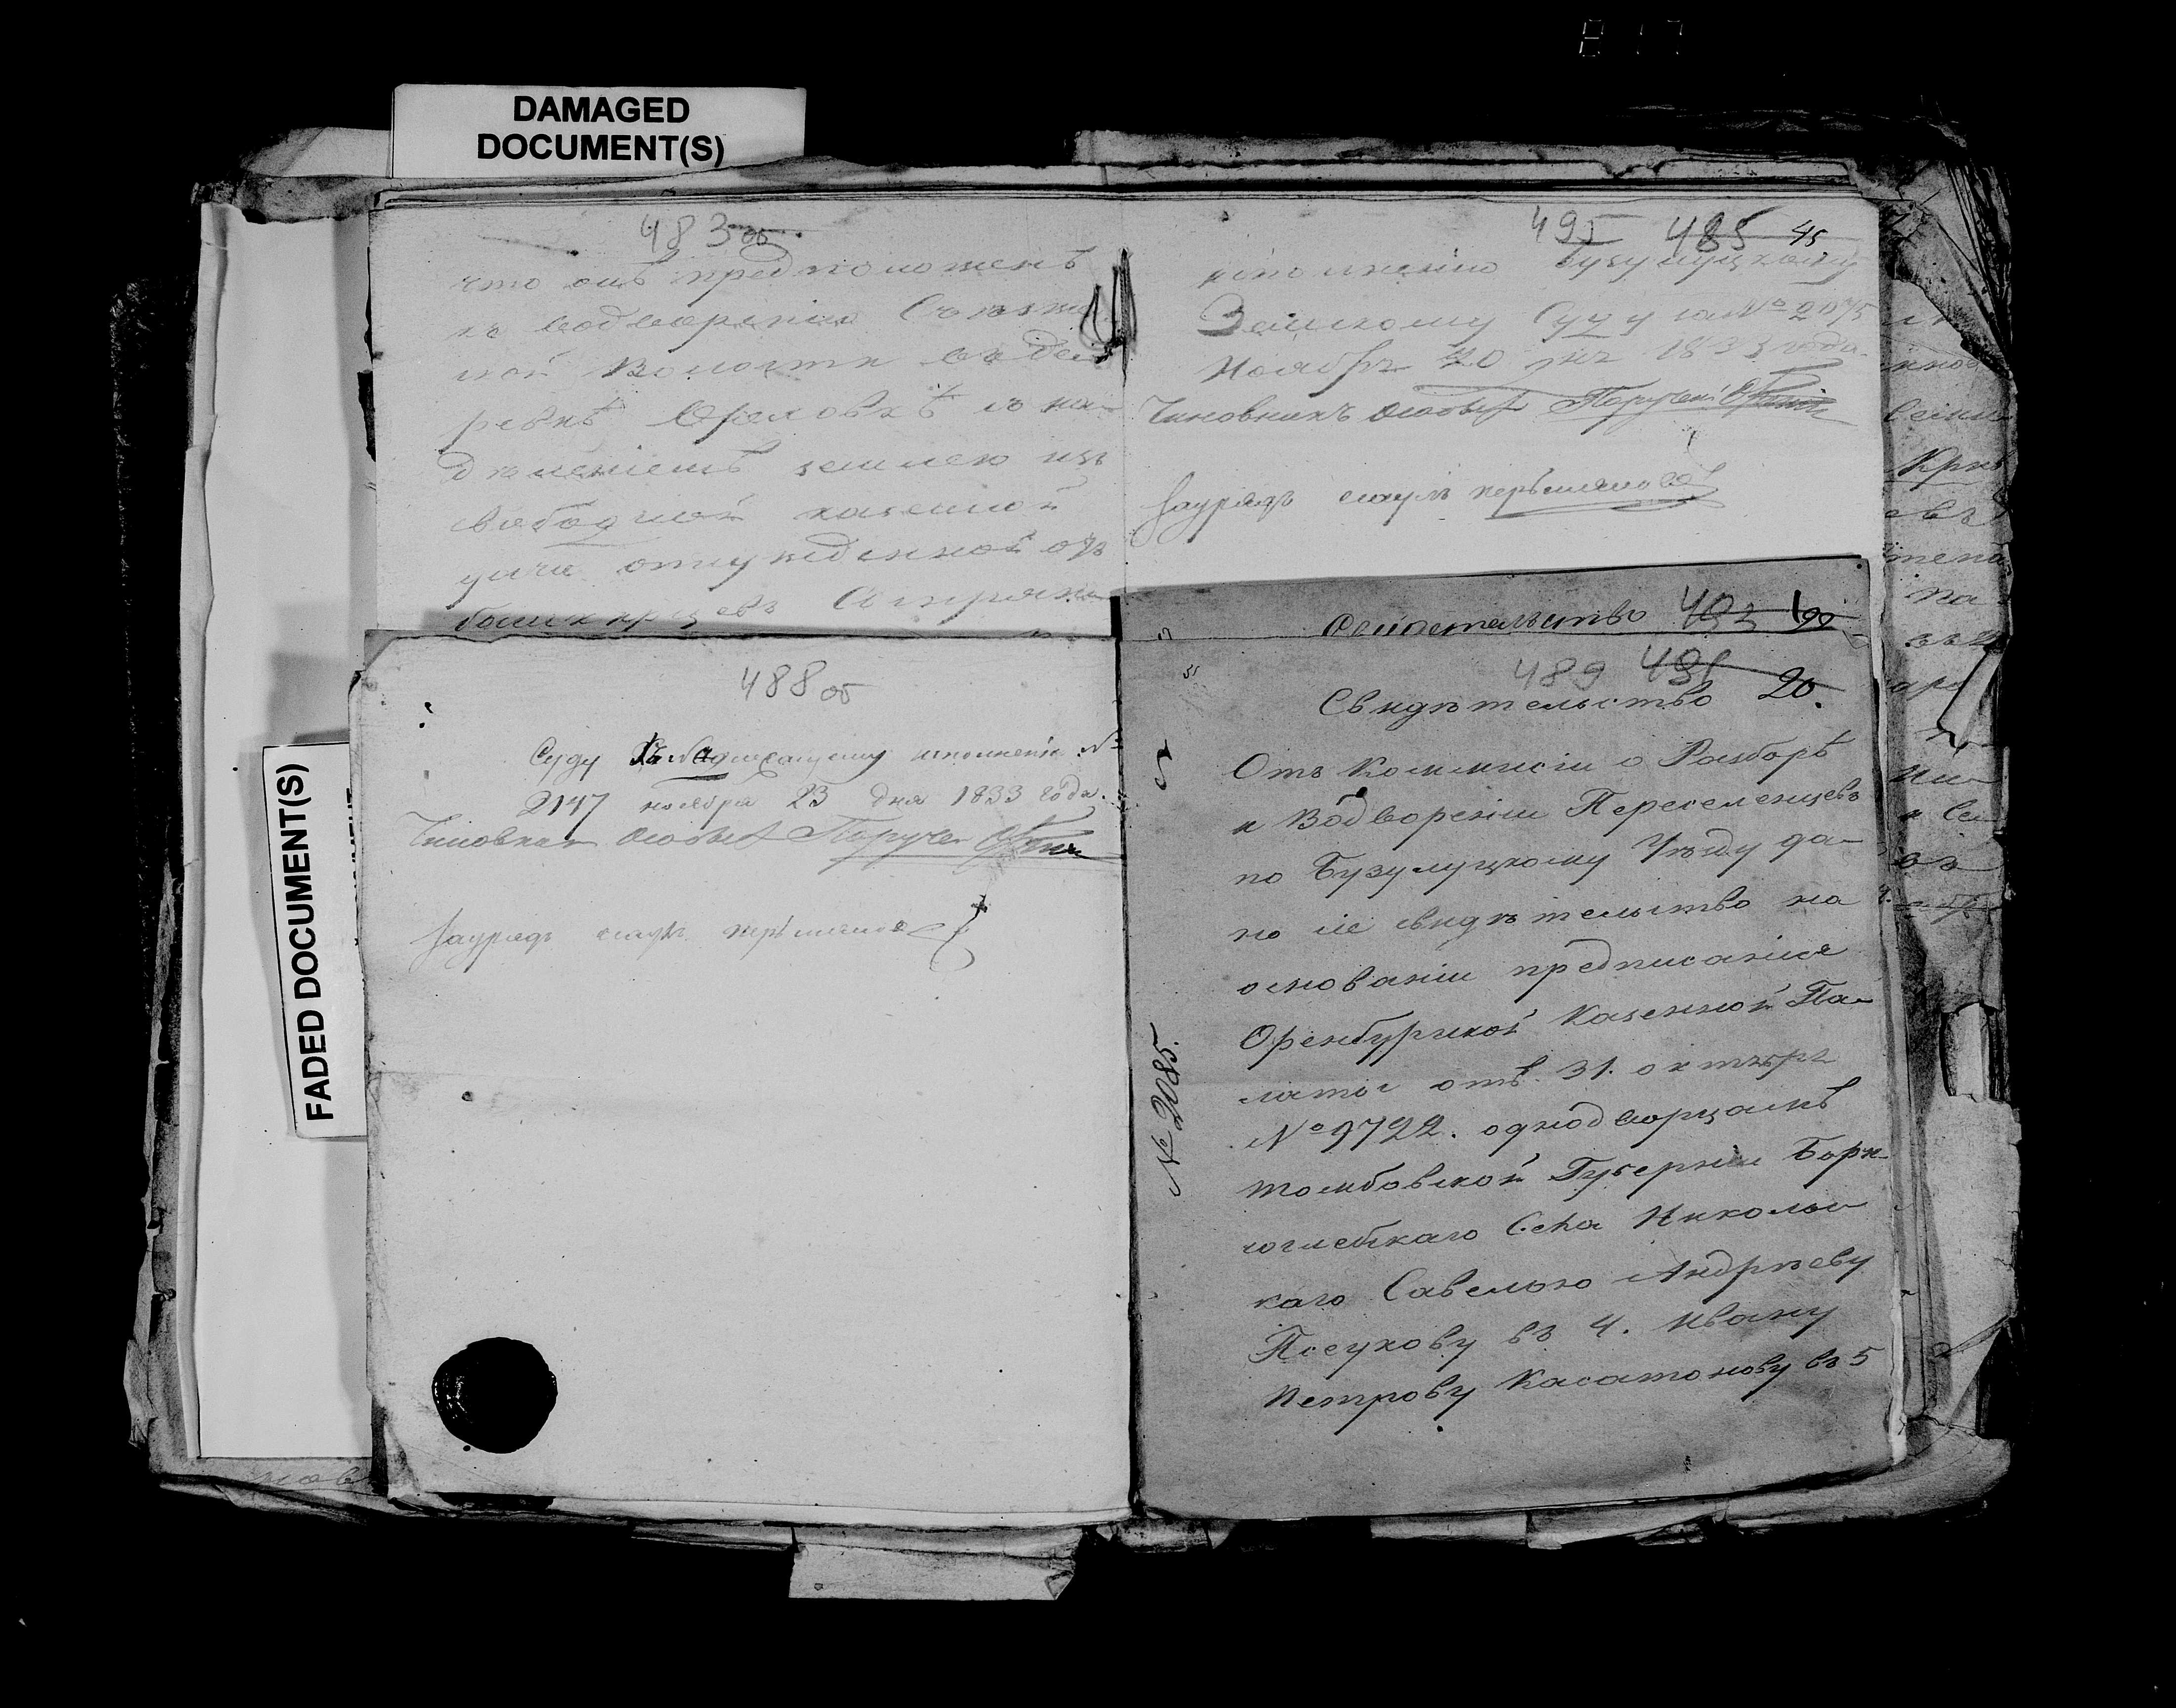 817
DAMAGED
DOCUMENT(S)
483 об
что онъ предположенъ
къ водворенію Съезже
ной Волости въ де
ревнѣ Орловкѣ съ на
дѣленіемъ землею изъ
свободной казенной
дачи отсужденной отъ
башкирцевъ
495 485 45
исполнению Бузулуцкому
Земскому Суду за № 2075
Ноября 20 дня 1833 года.
Чиновникъ особых Поручен
Заурядъ есаулъ
488 об
Суду Къ надлежащему исполненію №
2147 ноября 23 дня 1833 года.
Чиновник особых Поручен
Заурядъ есаулъ
FADED DOCUMENT(S)
Свидѣтельство 493 199
489 491 20.
Свидѣтельство
№ 2085.
Отъ Коммисіи о Разборѣ
и Водвореніи Переселенцевъ
по Бузулуцкому Уѣзду да-
но сіе свидѣтельство на
основаніи предписанія
Оренбургской Казенной Па-
латы отъ 31. октября
№ 9722. однодворцамъ
томбовской Губерніи Бори-
соглебскаго Села Никольс
каго Савелью Андрѣеву
Псеукову въ 4. Ивану
Петрову Касатонову въ 5